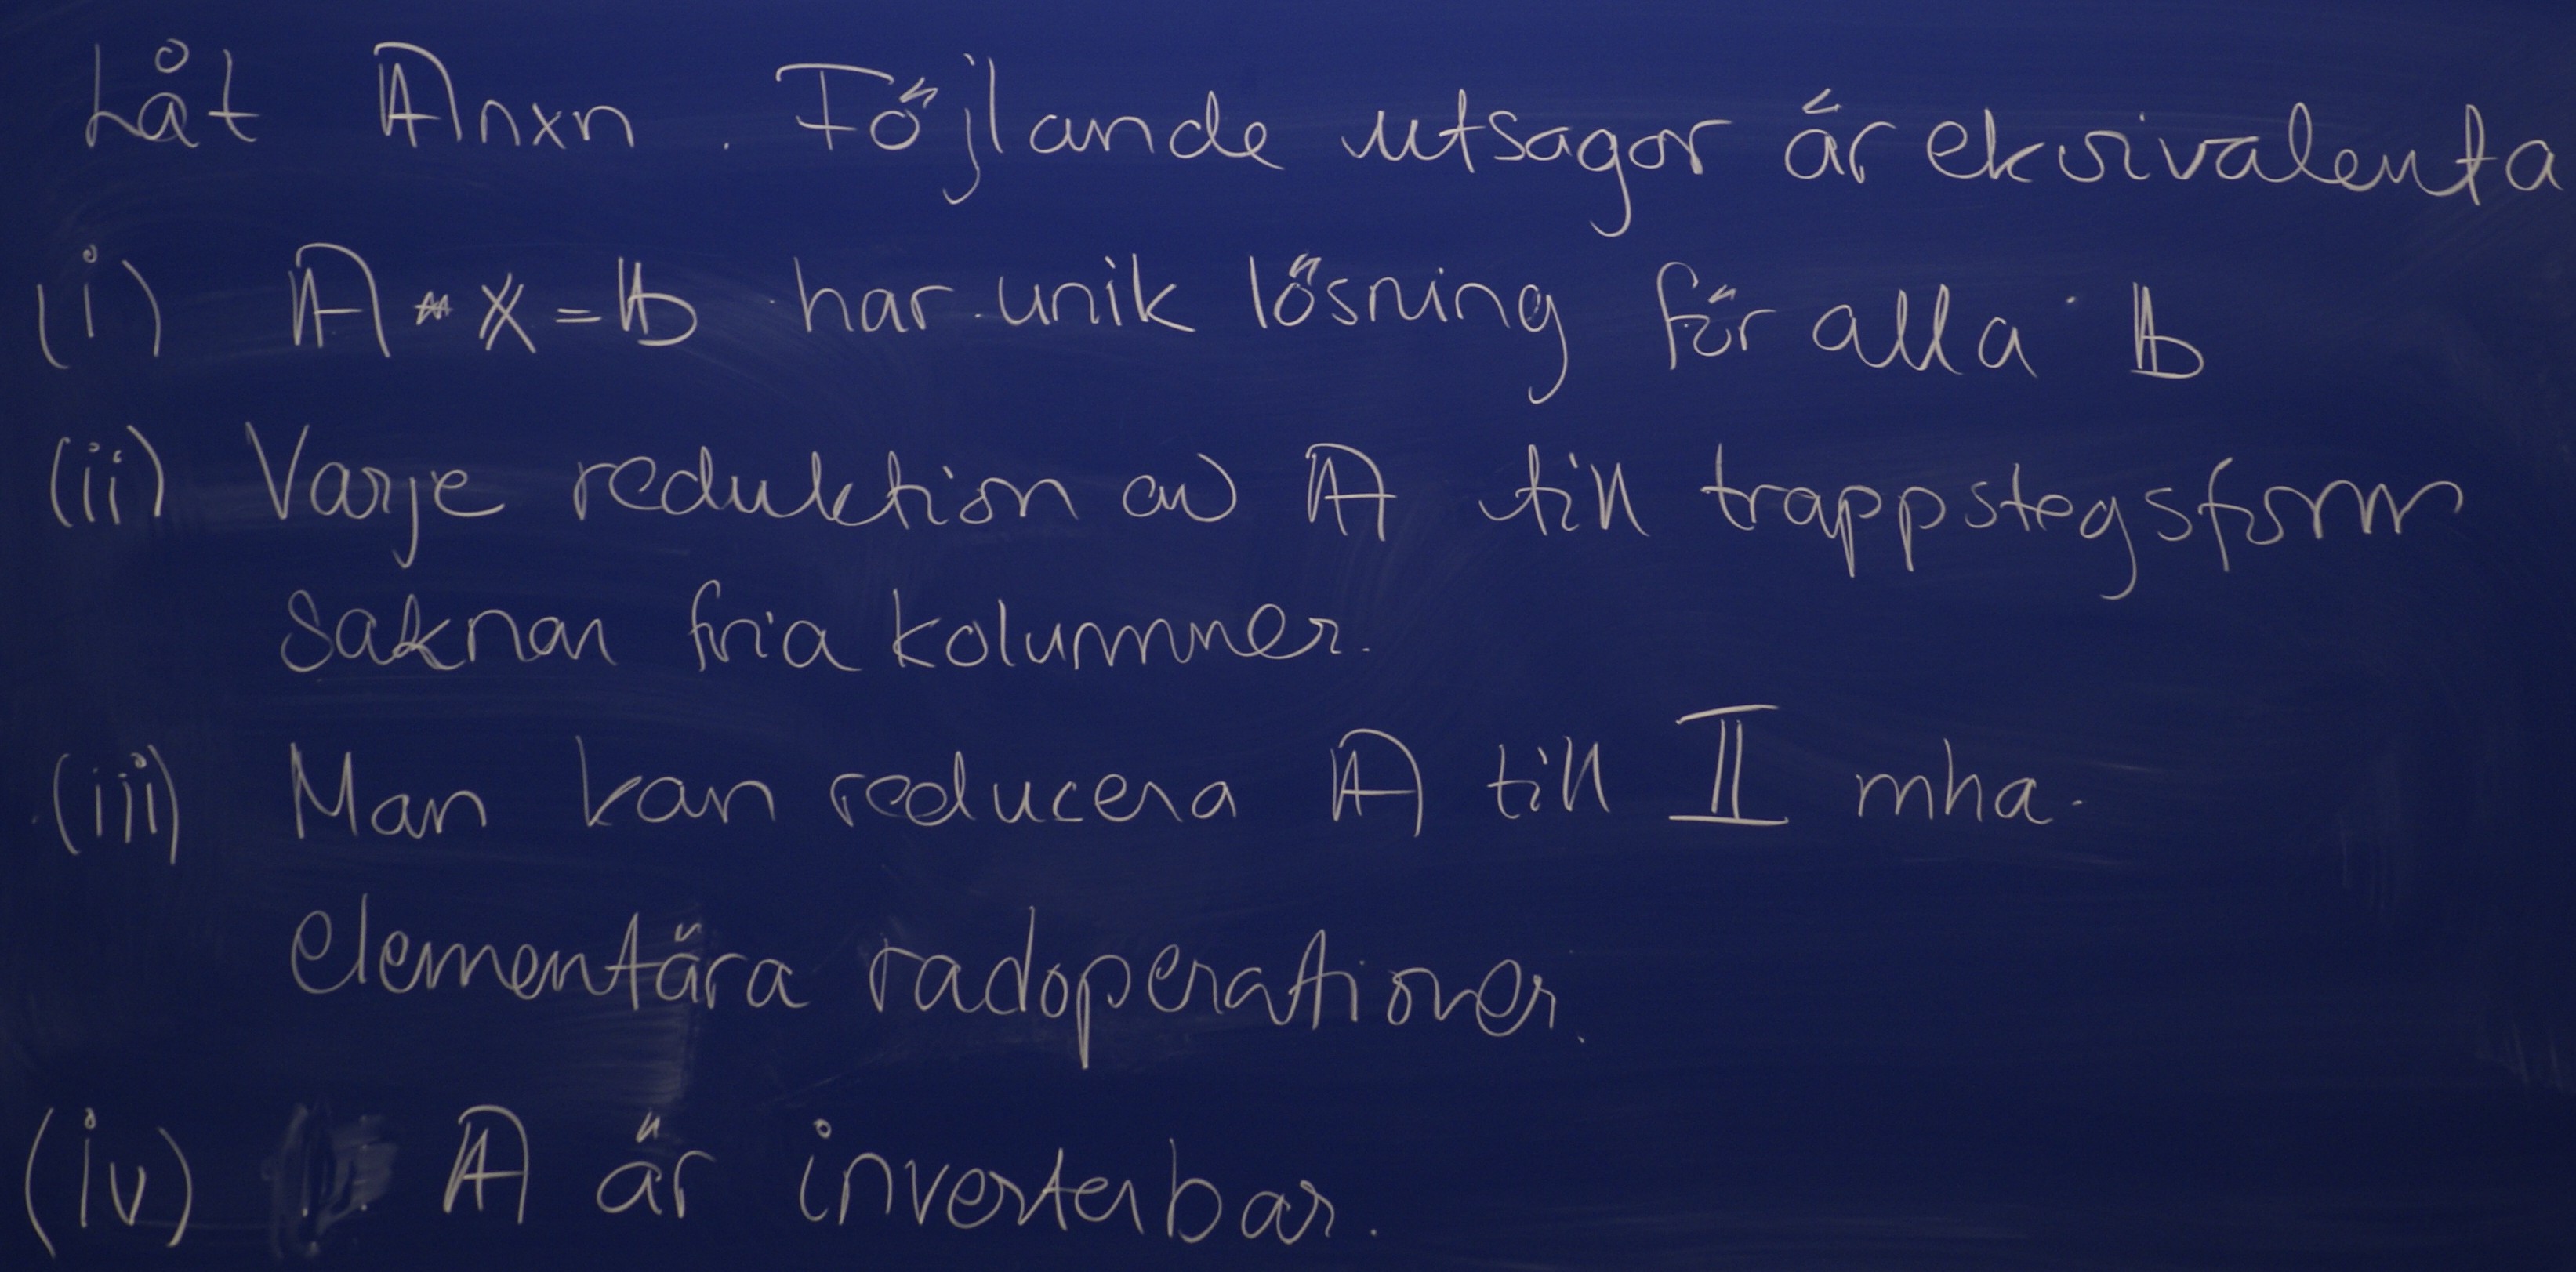 Låt 𝔸n×n. Föjlande utsagor är ekvivalenta
(i) 𝔸 * 𝕏 = 𝕓 har unik lösning för alla 𝕓
(ii) Varje reduktion av 𝔸 till trappstegsform
saknar fria kolumner.
(iii) Man kan reducera 𝔸 till 𝕀 mha.
elementära radoperationer.
(iv) 𝔸 är inverterbar.